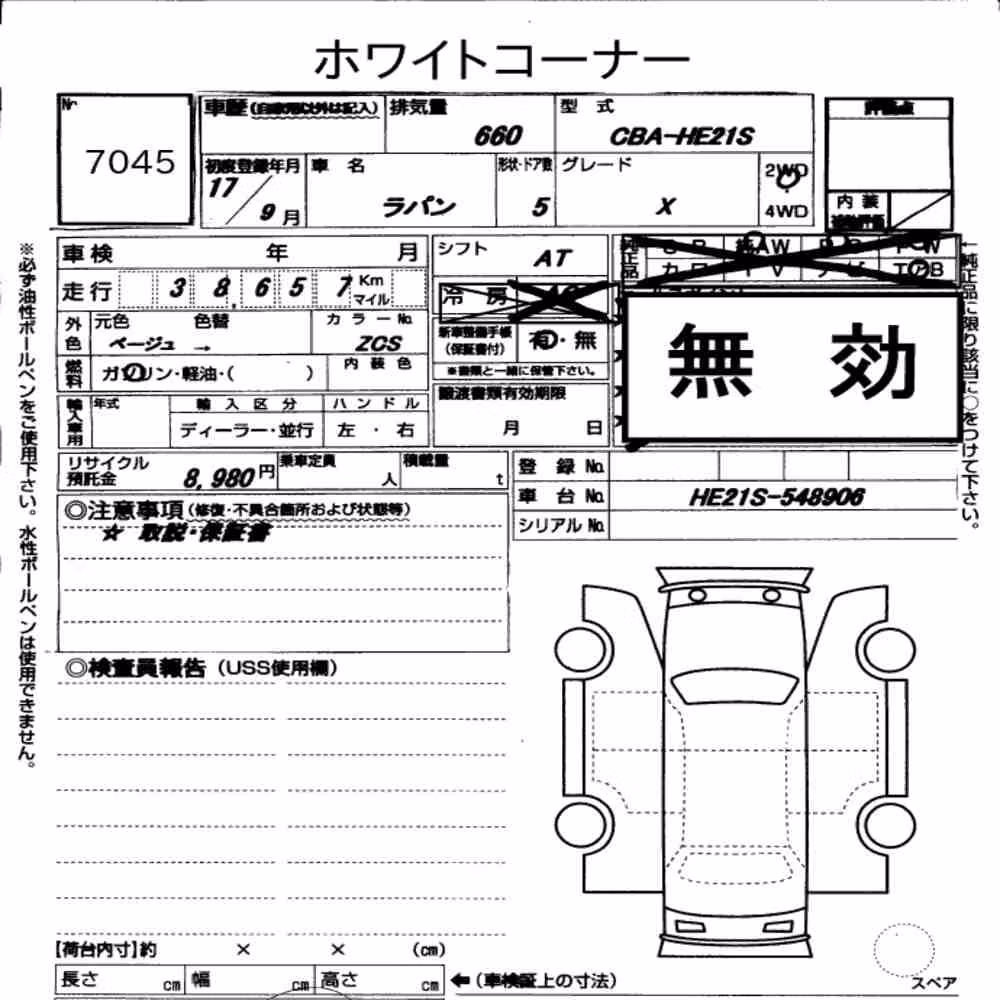 ホワイトコーナー
Nr 7045
車歴(自家用以外は記入) 排気量 660
型式 CBA-HE21S
初度登録年月 17/9月
車名 ラパン
形状・ドア数 5
グレード X
2WD
4WD
内装
車検 年 月
走行 38,657 Km マイル
外色 元色 ベージュ → 色替
カラーNo. ZCS
燃料 ガソリン・軽油・( )
内装色
輸入車用 年式
輸入区分 ディーラー・並行
ハンドル 左・右
シフト AT
冷房 AC
新車整備手帳(保証書付) 有・無
※書類と一緒に保管下さい。
譲渡書類有効期限
月 日
純正品
無効
リサイクル預託金 8,980円
乗車定員 人
積載量 t
登録No.
車台No. HE21S-548906
シリアルNo.
◎注意事項(修復・不具合箇所および状態等)
☆ 取説・保証書
◎検査員報告(USS使用欄)
【荷台内寸】約 × × (cm)
長さ cm 幅 cm 高さ cm ←(車検証上の寸法)
スペア
※必ず油性ボールペンをご使用下さい。水性ボールペンは使用できません。
←純正品に限り該当に○をつけて下さい。